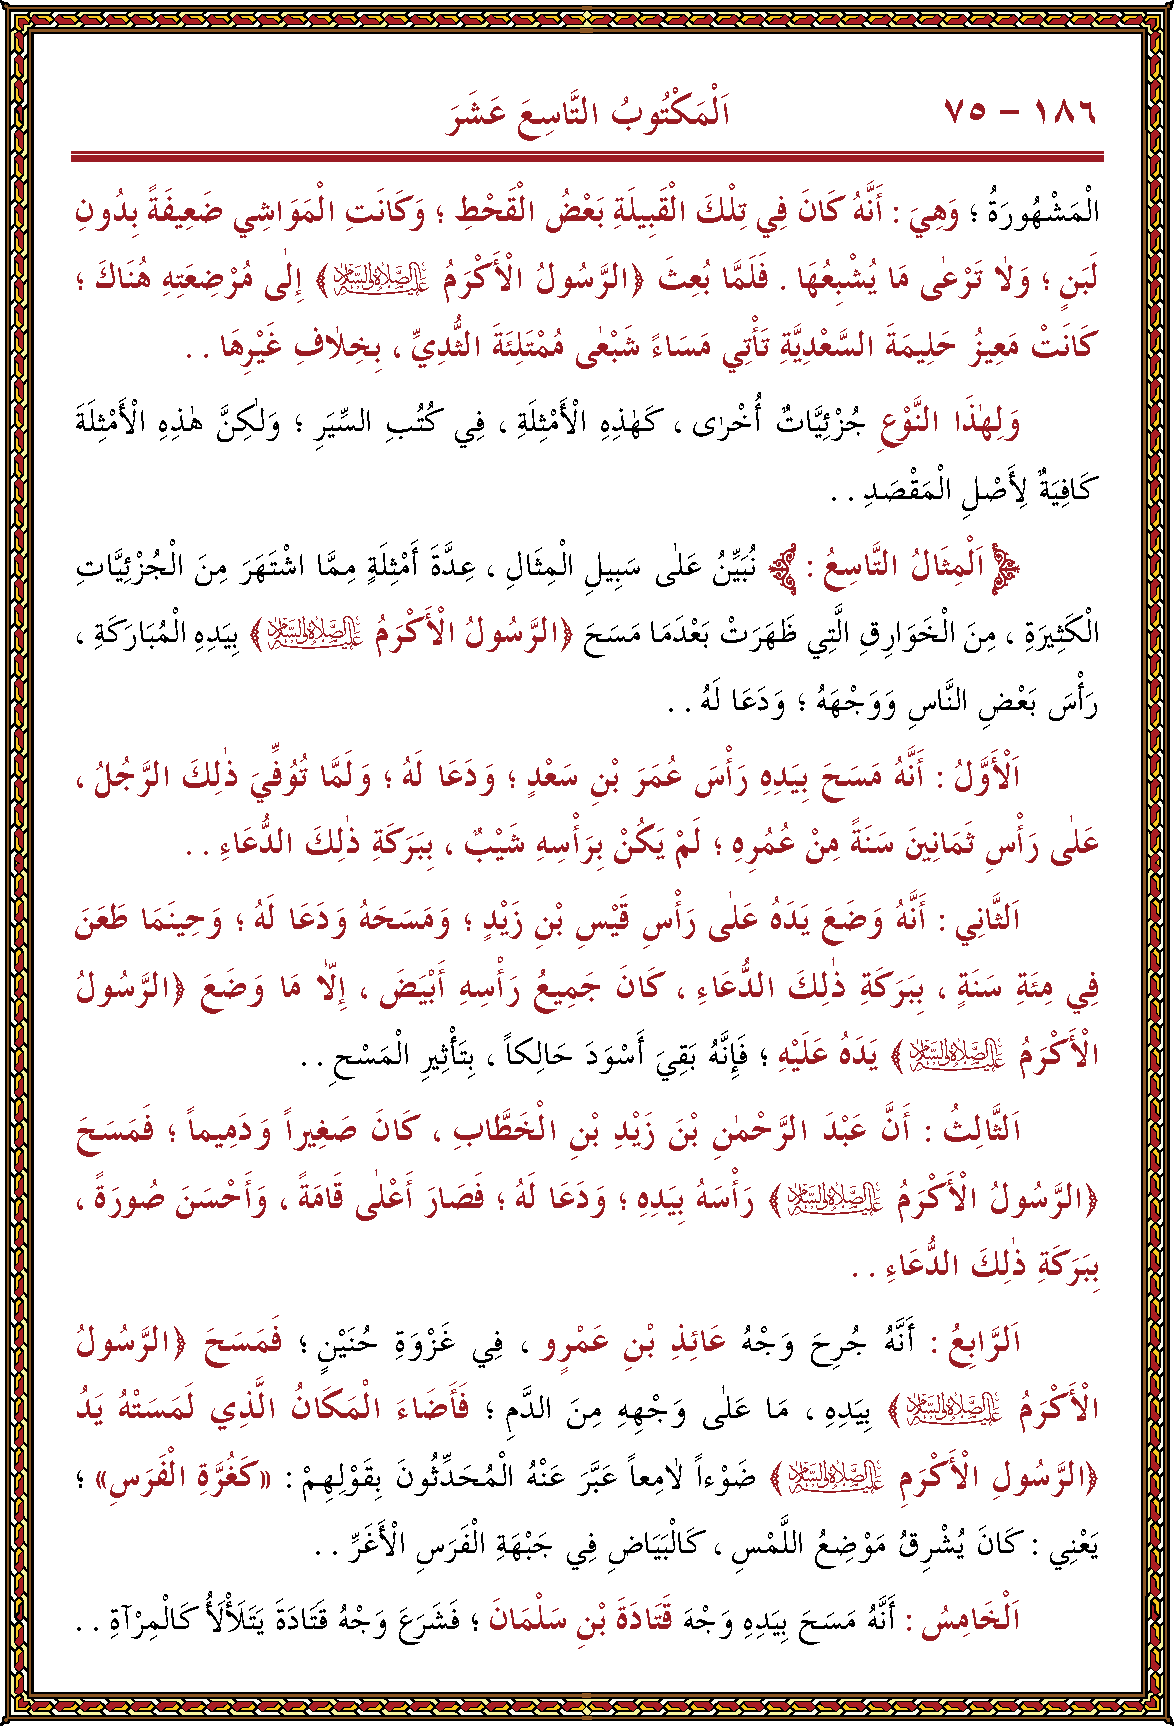 ١٨٦ – ٧٥
اَلْمَكْتُوبُ التَّاسِعَ عَشَرَ
الْمَشْهُورَةُ ؛ وَهِيَ : أَنَّهُ كَانَ فِي تِلْكَ الْقَبِيلَةِ بَعْضُ الْقَحْطِ ؛ وَكَانَتِ الْمَوَاشِي ضَعِيفَةً بِدُونِ
لَبَنٍ ؛ وَلَا تَرْعٰى مَا يُشْبِعُهَا . فَلَمَّا بُعِثَ ﴿الرَّسُولُ الْأَكْرَمُ عَلَيْهِ الصَّلَاةُ وَالسَّلَامُ﴾ إِلٰى مُرْضِعَتِهِ هُنَاكَ ؛
كَانَتْ مَعِيزُ حَلِيمَةَ السَّعْدِيَّةِ تَأْتِي مَسَاءً شَبْعٰى مُمْتَلِئَةَ الثُّدِيِّ ، بِخِلَافِ غَيْرِهَا . .
وَلِهٰذَا النَّوْعِ جُزْئِيَّاتٌ أُخْرٰى ، كَهٰذِهِ الْأَمْثِلَةِ ، فِي كُتُبِ السِّيَرِ ؛ وَلٰكِنَّ هٰذِهِ الْأَمْثِلَةَ
كَافِيَةٌ لِأَصْلِ الْمَقْصَدِ . .
﴿اَلْمِثَالُ التَّاسِعُ :﴾ نُبَيِّنُ عَلٰى سَبِيلِ الْمِثَالِ ، عِدَّةَ أَمْثِلَةٍ مِمَّا اشْتَهَرَ مِنَ الْجُزْئِيَّاتِ
الْكَثِيرَةِ ، مِنَ الْخَوَارِقِ الَّتِي ظَهَرَتْ بَعْدَمَا مَسَحَ ﴿الرَّسُولُ الْأَكْرَمُ عَلَيْهِ الصَّلَاةُ وَالسَّلَامُ﴾ بِيَدِهِ الْمُبَارَكَةِ ،
رَأْسَ بَعْضِ النَّاسِ وَوَجْهَهُ ؛ وَدَعَا لَهُ . .
اَلْأَوَّلُ : أَنَّهُ مَسَحَ بِيَدِهِ رَأْسَ عُمَرَ بْنِ سَعْدٍ ؛ وَدَعَا لَهُ ؛ وَلَمَّا تُوُفِّيَ ذٰلِكَ الرَّجُلُ ،
عَلٰى رَأْسِ ثَمَانِينَ سَنَةً مِنْ عُمُرِهِ ؛ لَمْ يَكُنْ بِرَأْسِهِ شَيْبٌ ، بِبَرَكَةِ ذٰلِكَ الدُّعَاءِ . .
اَلثَّانِي : أَنَّهُ وَضَعَ يَدَهُ عَلٰى رَأْسِ قَيْسِ بْنِ زَيْدٍ ؛ وَمَسَحَهُ وَدَعَا لَهُ ؛ وَحِينَمَا طَعَنَ
فِي مِئَةِ سَنَةٍ ، بِبَرَكَةِ ذٰلِكَ الدُّعَاءِ ، كَانَ جَمِيعُ رَأْسِهِ أَبْيَضَ ، إِلَّا مَا وَضَعَ ﴿الرَّسُولُ
الْأَكْرَمُ عَلَيْهِ الصَّلَاةُ وَالسَّلَامُ﴾ يَدَهُ عَلَيْهِ ؛ فَإِنَّهُ بَقِيَ أَسْوَدَ حَالِكاً ، بِتَأْثِيرِ الْمَسْحِ . .
اَلثَّالِثُ : أَنَّ عَبْدَ الرَّحْمٰنِ بْنَ زَيْدِ بْنِ الْخَطَّابِ ، كَانَ صَغِيراً وَدَمِيماً ؛ فَمَسَحَ
﴿الرَّسُولُ الْأَكْرَمُ عَلَيْهِ الصَّلَاةُ وَالسَّلَامُ﴾ رَأْسَهُ بِيَدِهِ ؛ وَدَعَا لَهُ ؛ فَصَارَ أَعْلٰى قَامَةً ، وَأَحْسَنَ صُورَةً ،
بِبَرَكَةِ ذٰلِكَ الدُّعَاءِ . .
اَلرَّابِعُ : أَنَّهُ جُرِحَ وَجْهُ عَائِذِ بْنِ عَمْرٍو ، فِي غَزْوَةِ حُنَيْنٍ ؛ فَمَسَحَ ﴿الرَّسُولُ
الْأَكْرَمُ عَلَيْهِ الصَّلَاةُ وَالسَّلَامُ﴾ بِيَدِهِ ، مَا عَلٰى وَجْهِهِ مِنَ الدَّمِ ؛ فَأَضَاءَ الْمَكَانُ الَّذِي لَمَسَتْهُ يَدُ
﴿الرَّسُولِ الْأَكْرَمِ عَلَيْهِ الصَّلَاةُ وَالسَّلَامُ﴾ ضَوْءاً لَامِعاً عَبَّرَ عَنْهُ الْمُحَدِّثُونَ بِقَوْلِهِمْ : «كَغُرَّةِ الْفَرَسِ» ؛
يَعْنِي : كَانَ يُشْرِقُ مَوْضِعُ اللَّمْسِ ، كَالْبَيَاضِ فِي جَبْهَةِ الْفَرَسِ الْأَغَرِّ . .
اَلْخَامِسُ : أَنَّهُ مَسَحَ بِيَدِهِ وَجْهَ قَتَادَةَ بْنِ سَلْمَانَ ؛ فَشَرَعَ وَجْهُ قَتَادَةَ يَتَلَأْلَأُ كَالْمِرْآةِ . .